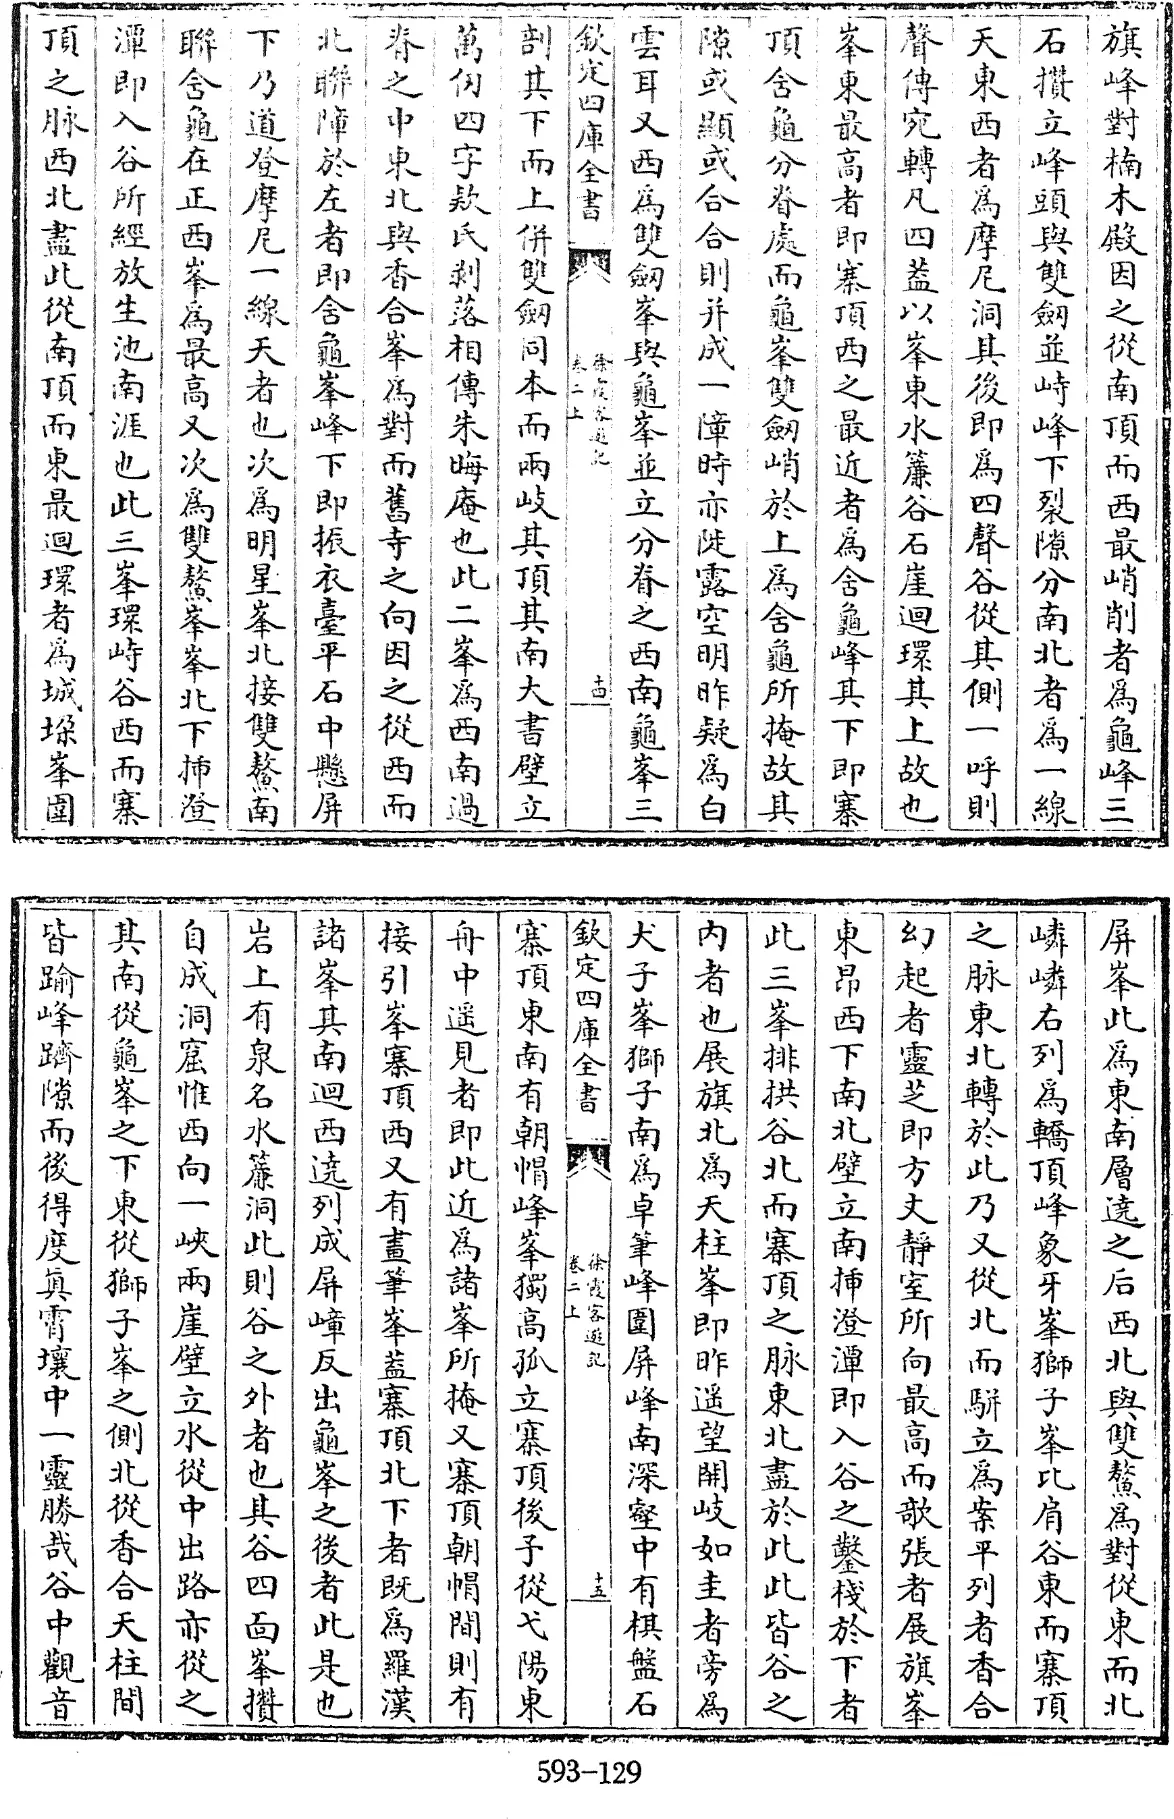 旗峰對楠木殿因之從南頂而西最峭削者為龜峰三
石攢立峰頭與雙劔並峙峰下裂隙分南北者為一線
天東西者為摩尼洞其後即為四聲谷從其側一呼則
聲傳宛轉凡四葢以峯東水簾谷石崖迴環其上故也
峯東最高者即寨頂西之最近者為含龜峰其下即寨
頂含龜分脊處而龜峯雙劔峭於上為含龜所掩故其
隙或顯或合合則并成一障時亦陡露空明昨疑為白
雲耳又西為雙劔峯與龜峯並立分脊之西南龜峯三
欽定四庫全書
徐霞客遊記
卷二上
十四
剖其下而上併雙劔同本而兩岐其頂其南大書壁立
萬仞四字欵氏剥落相傳朱晦庵也此二峯為西南過
脊之中東北與香合峯為對而舊寺之向因之從西而
北聯障於左者即含龜峯峰下即振衣臺平石中懸屏
下乃道登摩尼一線天者也次為明星峯北接雙鰲南
聯含龜在正西峯為最高又次為雙鰲峯峯北下揷澄
潭即入谷所經放生池南涯也此三峯環峙谷西而寨
頂之脉西北盡此從南頂而東最迴環者為城垜峯圍
屏峯此為東南層遶之后西北與雙鰲為對從東而北
嶙嶙右列為轎頂峰象牙峯獅子峯比肩谷東而寨頂
之脉東北轉於此乃又從北而駢立為案平列者香合
幻起者靈芝即方丈靜室所向最高而歌張者展旗峯
東昂西下南北壁立南揷澄潭即入谷之鑿棧於下者
此三峯排拱谷北而寨頂之脉東北盡於此此皆谷之
内者也展旗北為天柱峯即昨遥望開岐如圭者旁為
犬子峯獅子南為卓筆峰圍屏峰南深壑中有棋盤石
欽定四庫全書
徐霞客遊記
卷二上
十五
寨頂東南有朝帽峰峯獨高孤立寨頂後予從弋陽東
舟中遥見者即此近為諸峯所掩又寨頂朝帽間則有
接引峯寨頂西又有畫筆峯葢寨頂北下者既為羅漢
諸峯其南迴西遶列成屏嶂反出龜峯之後者此是也
岩上有泉名水簾洞此則谷之外者也其谷四面峯攢
自成洞窟惟西向一峽兩崖壁立水從中出路亦從之
其南從龜峯之下東從獅子峯之側北從香合天柱間
皆踰峰躋隙而後得度眞霄壤中一靈勝哉谷中觀音
593-129